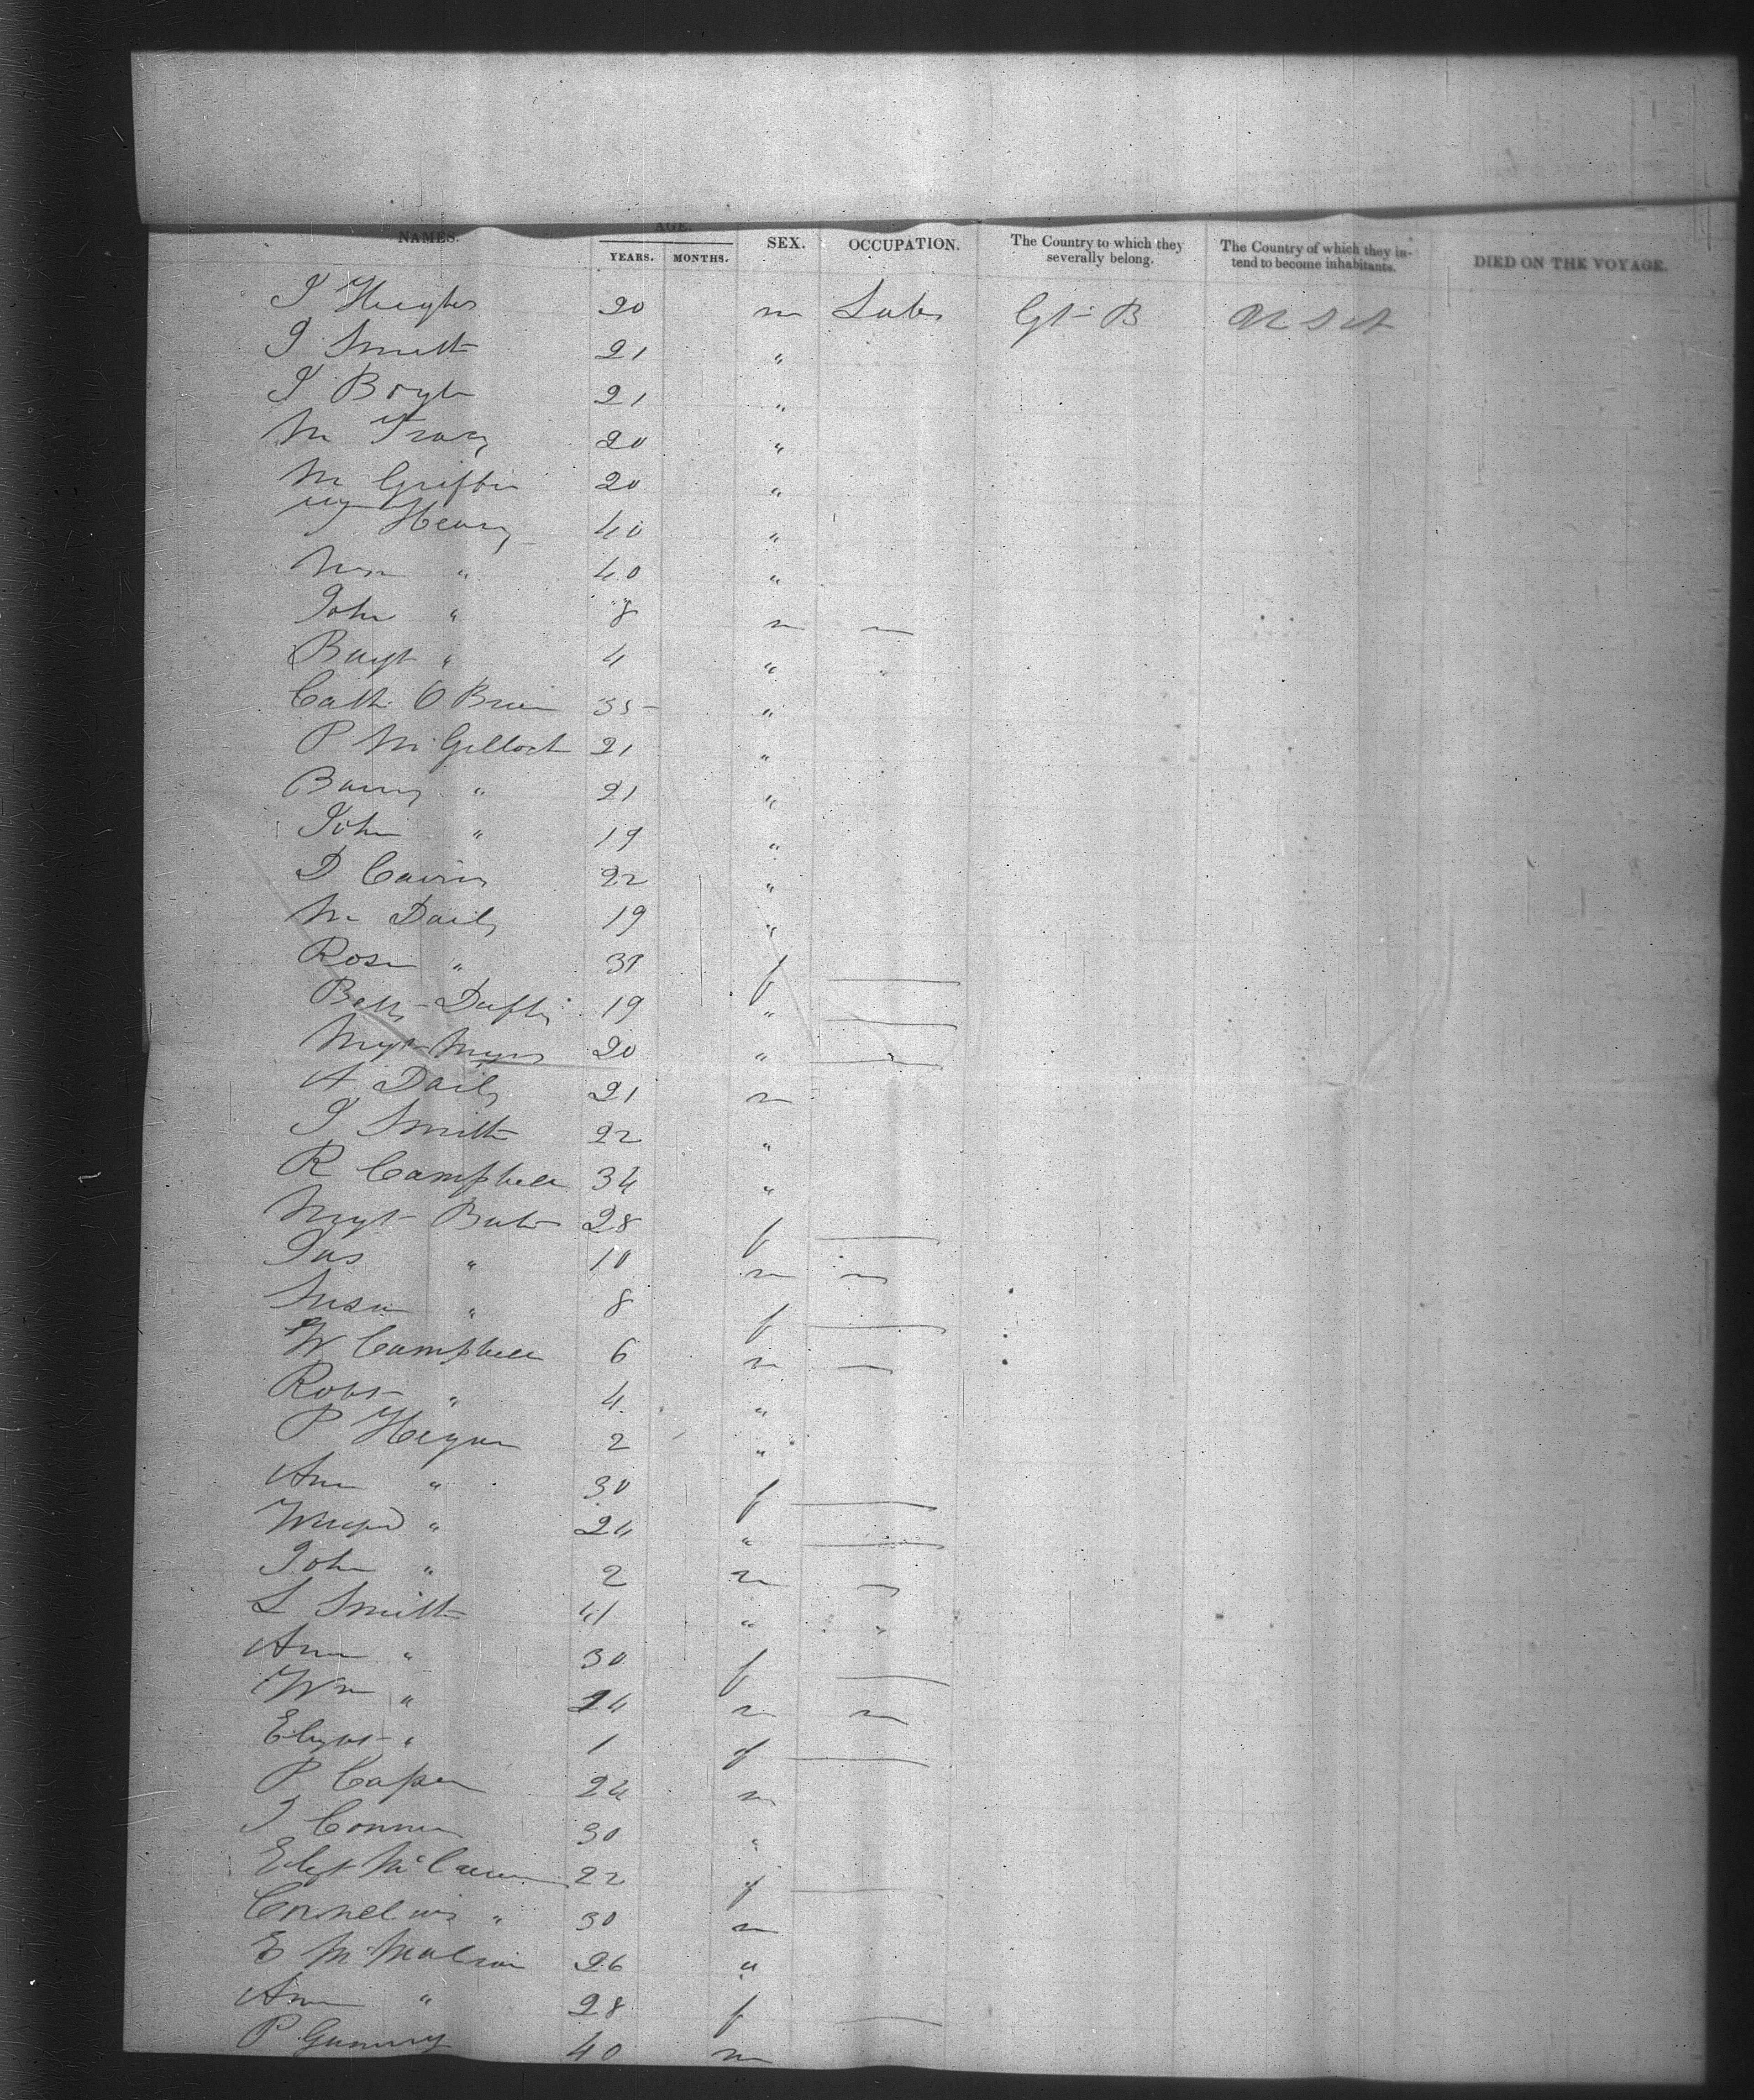 NAMES. AGE. YEARS. MONTHS. SEX. OCCUPATION. The Country to which they severally belong. The Country of which they intend to become inhabitants. DIED ON THE VOYAGE.
J Hughes 20 m Labr Gt B U S A
J Smith 21 "
J Boyle 21 "
M Tracy 20 "
M Griffin 20 "
Henry 40 "
" 40 "
John " 8 m —
" 4 " "
Cath O Brien 35 "
P McGulloch 21 "
Barny " 21 "
John " 19 "
D 22 "
M Daily 19 "
Rose " 31 f —
Betty Duffy 19 " —
Mgt Myers 20 " —
A Daily 21 m
J Smith 22 "
R Campbell 34 "
Mgt 28 f —
Jas " 10 m —
Susan " 8 f —
W Campbell 6 m —
Robt " 4 "
P Hegan 2 "
Ann " 30 f —
" 24 " —
John " 2 m —
L Smith 41 " "
Ann " 30 f —
Wm " 24 m —
Elizbt " 1 f —
P 24 m
J Connor 30 "
Elizt Mc 22 f —
Cornelius " 30 m
E 26 "
Ann " 28 f —
P 40 m